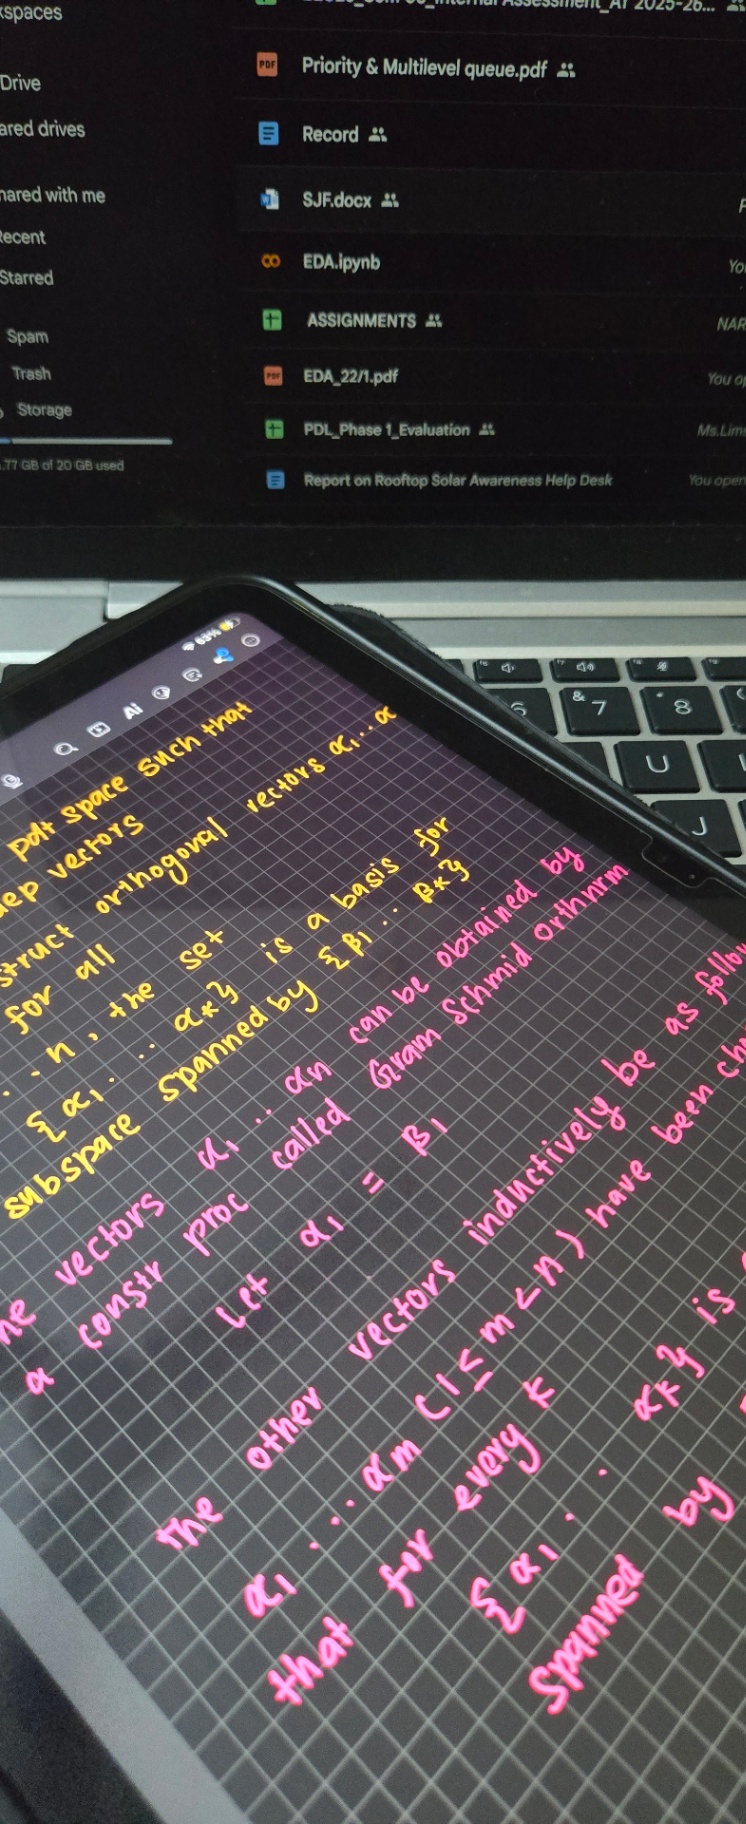 kspaces
Drive
ared drives
hared with me
Recent
Starred
Spam
Trash
Storage
.77 GB of 20 GB used
Internal Assessment_AY 2025-26...
Priority & Multilevel queue.pdf
Record
SJF.docx
EDA.ipynb
You
ASSIGNMENTS
NAR
EDA_22/1.pdf
You op
PDL_Phase 1_Evaluation
Ms.Lims
Report on Rooftop Solar Awareness Help Desk
You open
83%
Ai
& 7
* 8
6
U
J
pdt space such that
dep vectors
struct orthogonal vectors α1..α
for all
..n, the set
{α1... αk} is a basis for
subspace spanned by {β1.. βk}
he vectors α1..αn can be obtained by
a constr proc called Gram Schmid Orthnrm
Let α1 = β1
The other vectors inductively be as follow
α1...αm (1≤m<n) have been ch
that for every k
{α1.. αk} is
spanned by